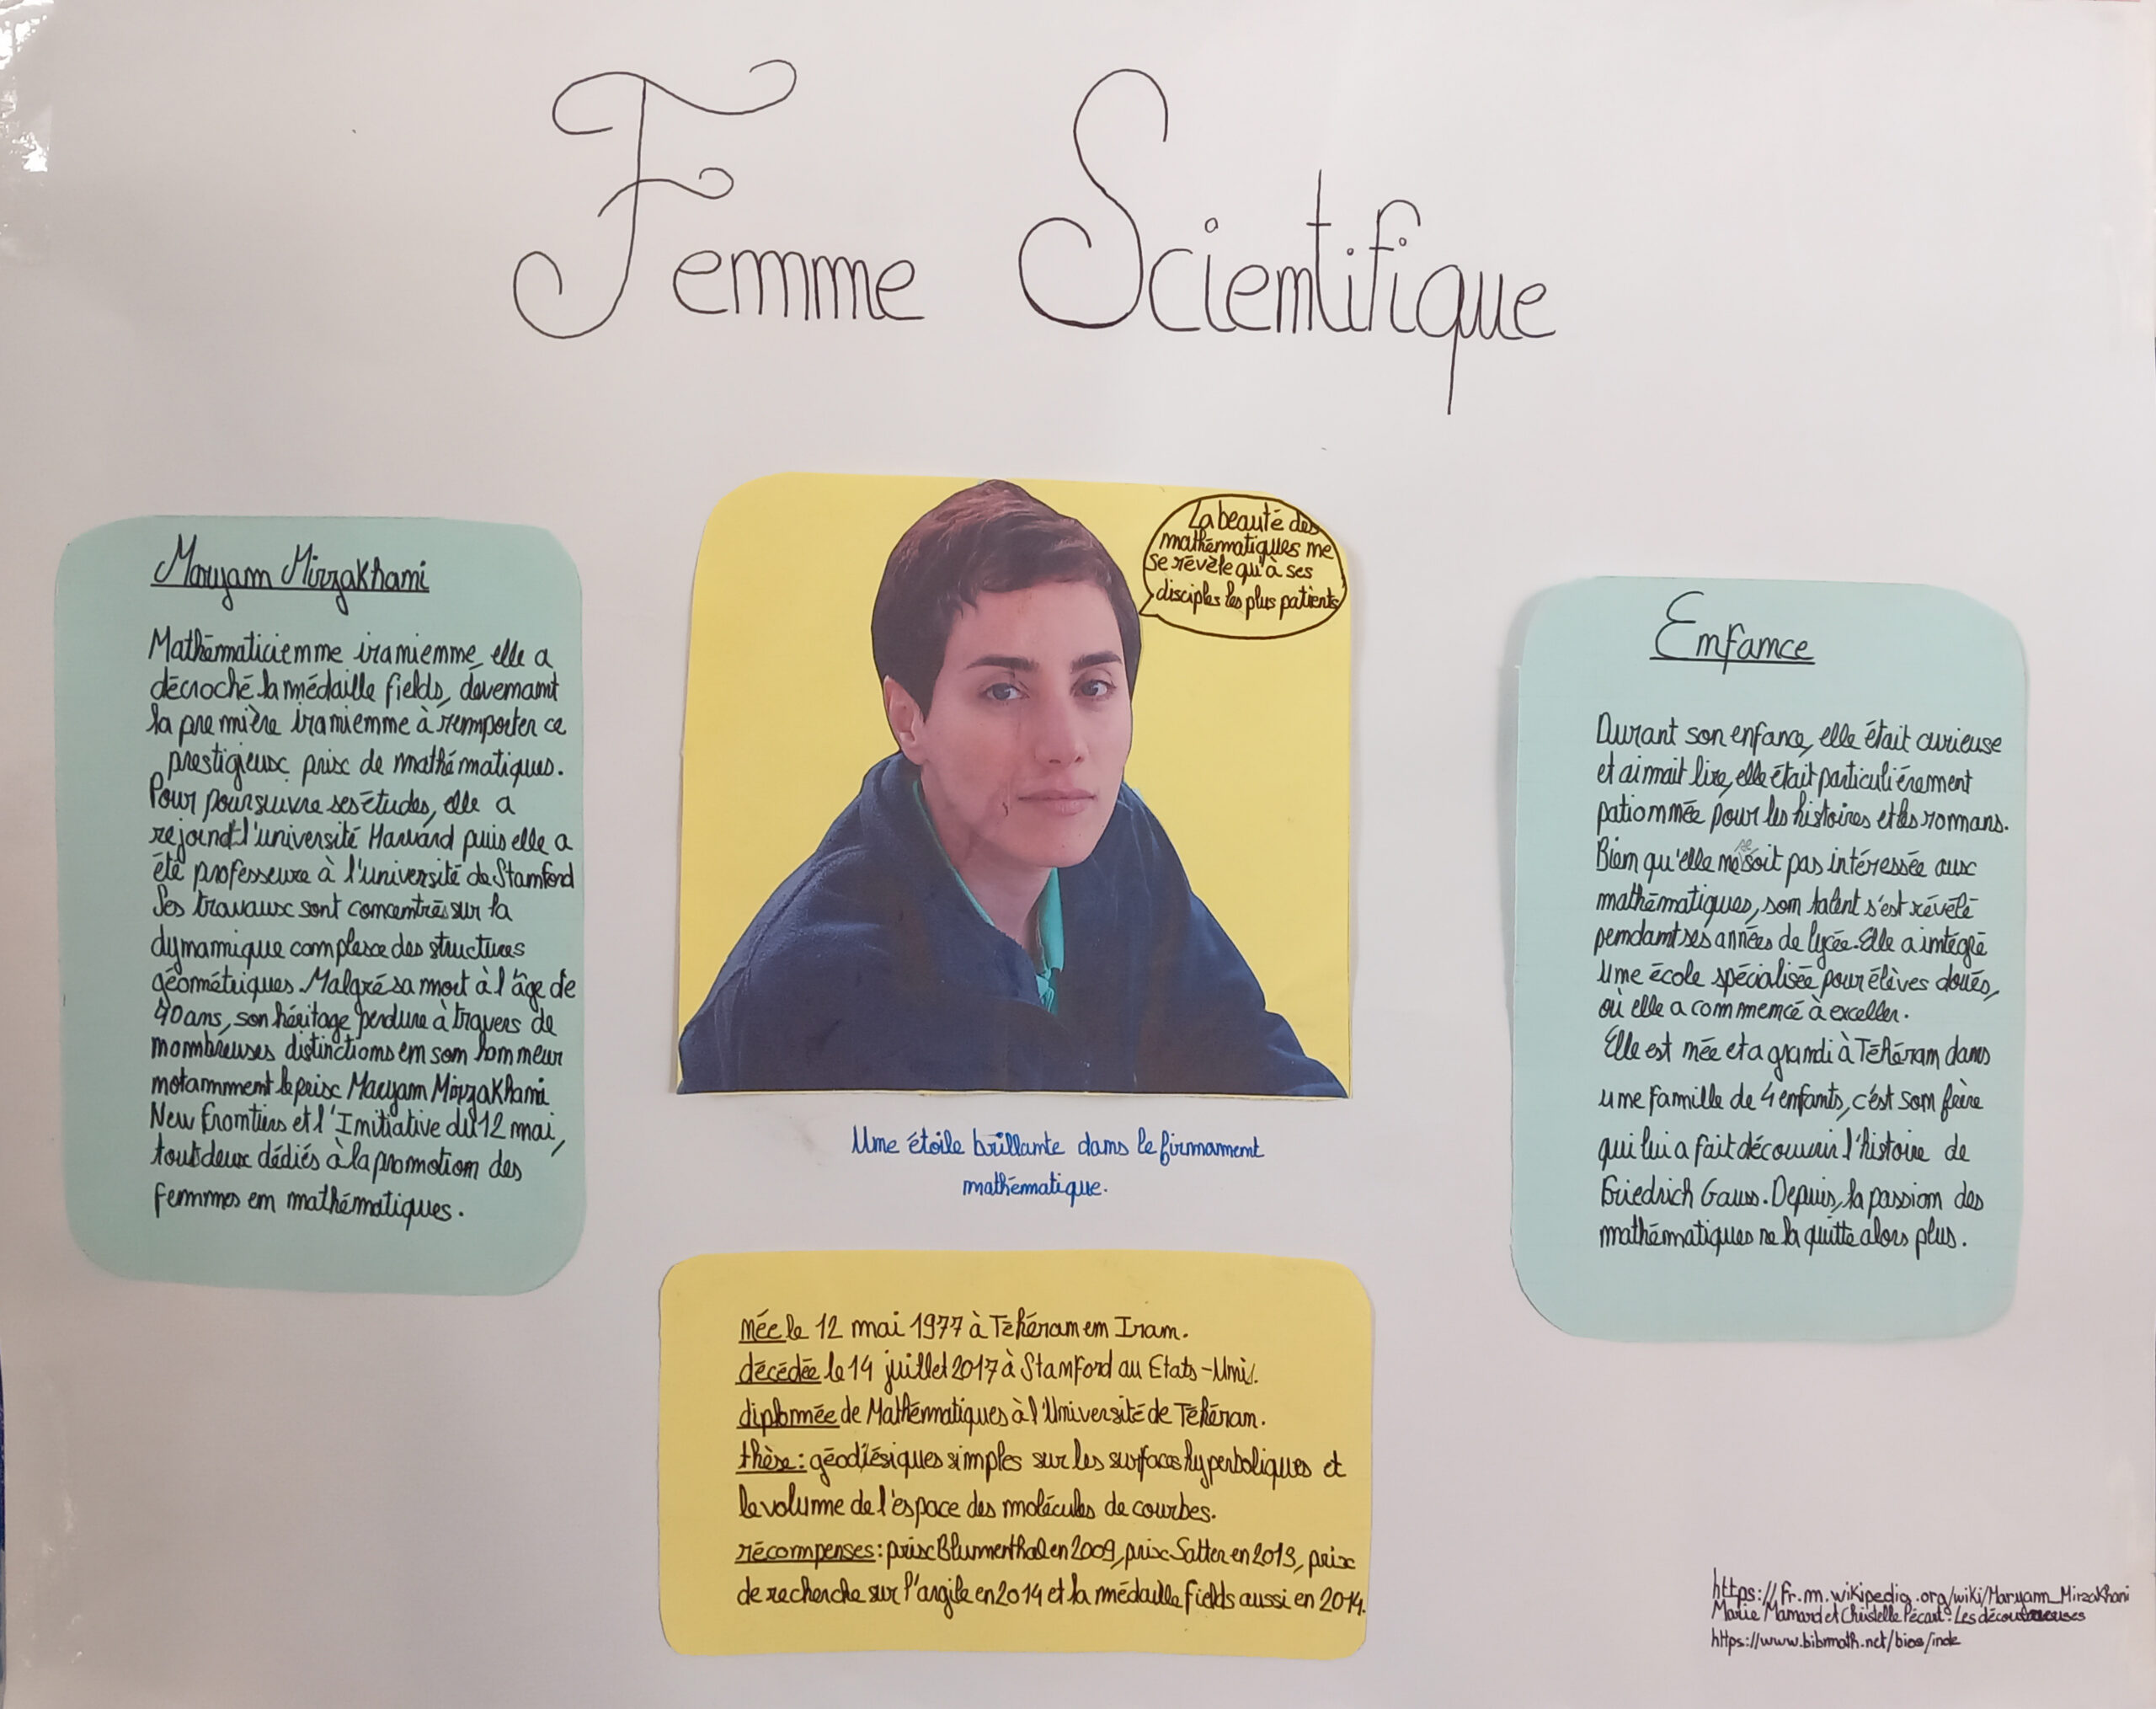 Femme Scientifique
Maryam Mirzakhani
Mathématicienne iranienne, elle a
décroché la médaille fields, devenant
la première iranienne à remporter ce
prestigieux prix de mathématiques.
Pour poursuivre ses études, elle a
rejoind l'université Harvard puis elle a
été professeure à l'université de Stanford
Ses travaux sont concentrés sur la
dynamique complexe des structures
géométriques. Malgré sa mort à l'âge de
40 ans, son héritage perdure à travers de
nombreuses distinctions en son honneur
notamment le prix Maryam Mirzakhani
New Frontiers et l'Initiative du 12 mai,
tout deux dédiés à la promotion des
femmes en mathématiques.
La beauté des
mathématiques ne
se révèle qu'à ses
disciples les plus patients
Une étoile brillante dans le firmament
mathématique.
née le 12 mai 1977 à Téhéran en Iran.
décédée le 14 juillet 2017 à Stanford au Etats-Unis.
diplomée de Mathématiques à l'Université de Téhéran.
thèse : géodésiques simples sur les surfaces hyperboliques et
le volume de l'espace des molécules de courbes.
récompenses : prix Blumenthal en 2009, prix Satter en 2013, prix
de recherche sur l'argile en 2014 et la médaille fields aussi en 2014.
Enfance
Durant son enfance, elle était curieuse
et aimait lire, elle était particuliérement
pationnée pour les histoires et les romans.
Bien qu'elle ne se soit pas intéressée aux
mathématiques, son talent s'est révélé
pendant ses années de lycée. Elle a intégré
une école spécialisée pour élèves doués,
où elle a commencé à exceller.
Elle est née et a grandi à Téhéran dans
une famille de 4 enfants, c'est son frère
qui lui a fait découvrir l'histoire de
Friedrich Gauss. Depuis, la passion des
mathématiques ne la quitte alors plus.
https://fr.m.wikipedia.org/wiki/Maryam_Mirzakhani
Marie Mamard et Christelle Pécart : Les découvreuses
https://www.bibmath.net/bios/inde